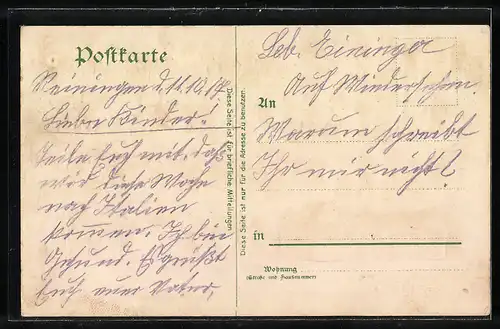 Postkarte
Reiningen d. 11.10.17.
Liebe Kinder!
Teile Euch mit, daß
wir diese Woche
nach Italien
kommen. Ich bin
Gesund. Es grüßt
Euch euer Vater,
Diese Seite ist für briefliche Mitteilungen
Diese Seite ist nur für die Adresse zu benutzen.
Geb. Eininger
Auf Wiedersehen.
An
Warum schreibt
Ihr mir nicht?
in
Wohnung
(Straße und Hausnummer)